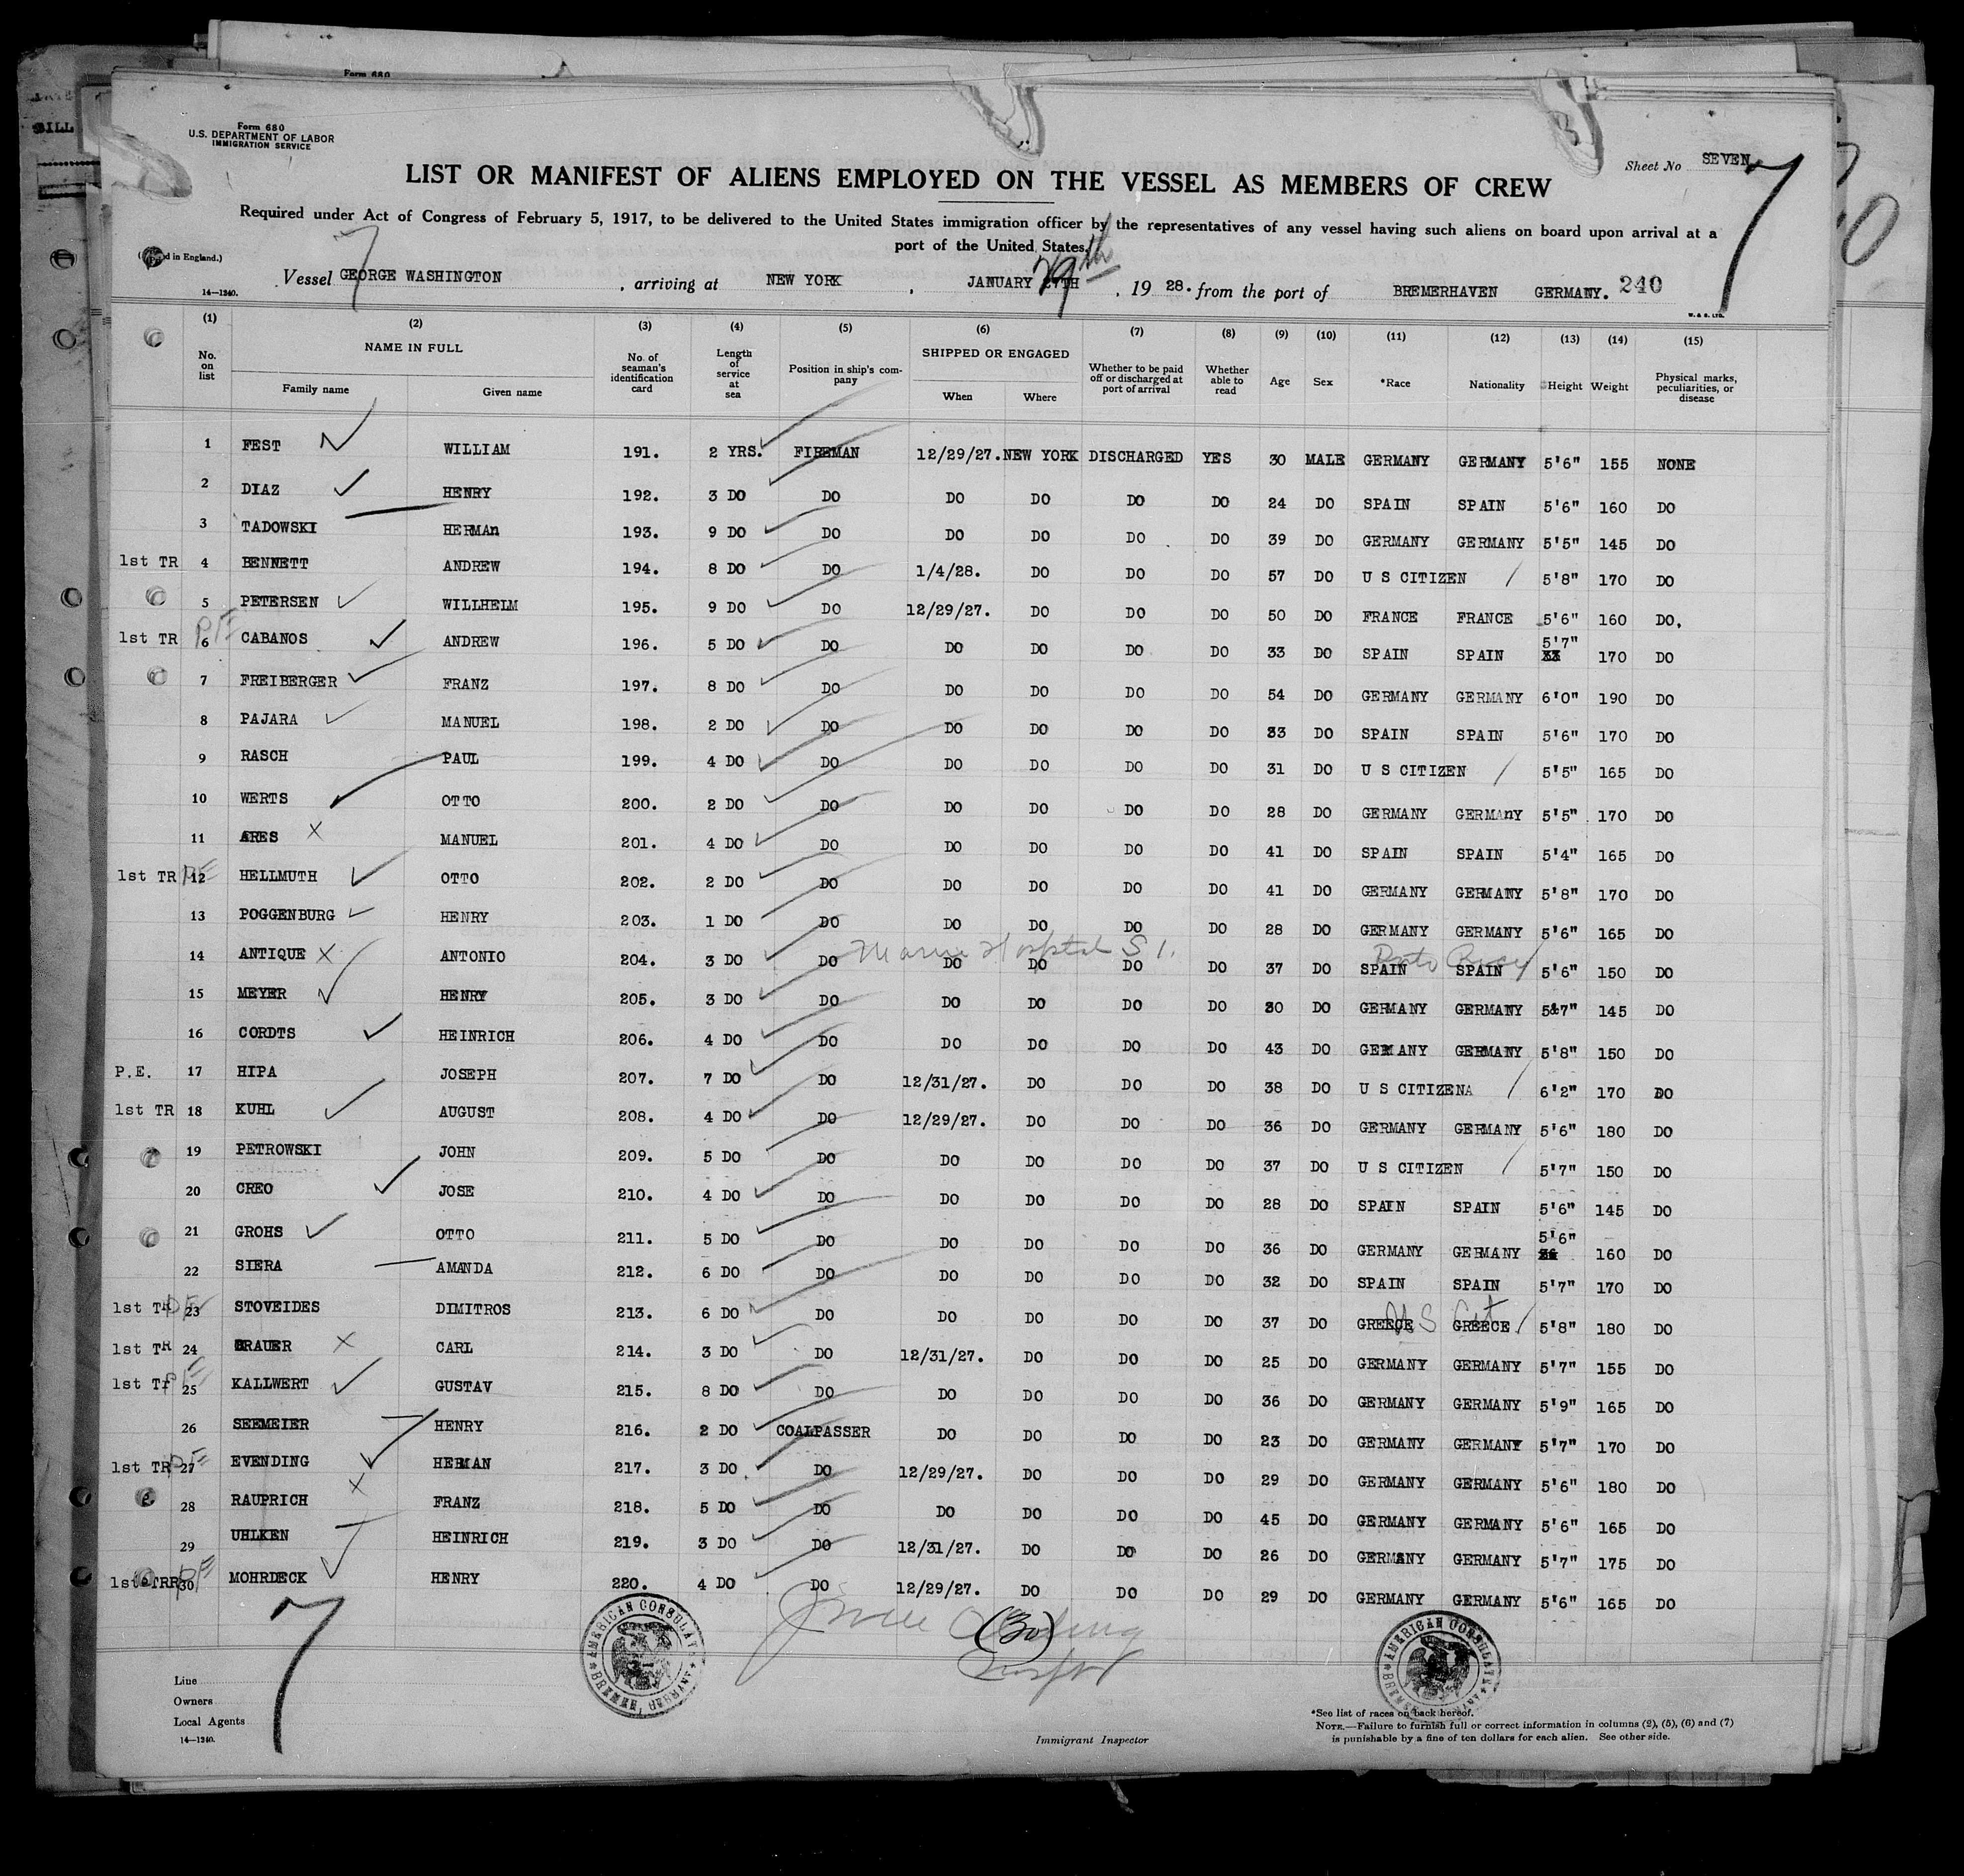 Form 680
U.S. DEPARTMENT OF LABOR
IMMIGRATION SERVICE
Sheet No SEVEN
7
LIST OR MANIFEST OF ALIENS EMPLOYED ON THE VESSEL AS MEMBERS OF CREW
Required under Act of Congress of February 5, 1917, to be delivered to the United States immigration officer by the representatives of any vessel having such aliens on board upon arrival at a
port of the United States.
Vessel GEORGE WASHINGTON, arriving at NEW YORK, JANUARY 29th, 1928. from the port of BREMERHAVEN GERMANY. 240
14—1240.
W. & S. LTD.
(1) (2) (3) (4) (5) (6) (7) (8) (9) (10) (11) (12) (13) (14) (15)
No. on list NAME IN FULL Family name Given name No. of seaman's identification card Length of service at sea Position in ship's company SHIPPED OR ENGAGED When Where Whether to be paid off or discharged at port of arrival Whether able to read Age Sex *Race Nationality Height Weight Physical marks, peculiarities, or disease
1 FEST WILLIAM 191. 2 YRS. FIREMAN 12/29/27. NEW YORK DISCHARGED YES 30 MALE GERMANY GERMANY 5'6" 155 NONE
2 DIAZ HENRY 192. 3 DO DO DO DO DO DO 24 DO SPAIN SPAIN 5'6" 160 DO
3 TADOWSKI HERMAn 193. 9 DO DO DO DO DO DO 39 DO GERMANY GERMANY 5'5" 145 DO
1st TR 4 BENNETT ANDREW 194. 8 DO DO 1/4/28. DO DO DO 57 DO U S CITIZEN 5'8" 170 DO
5 PETERSEN WILLHELM 195. 9 DO DO 12/29/27. DO DO DO 50 DO FRANCE FRANCE 5'6" 160 DO.
1st TR PE 6 CABANOS ANDREW 196. 5 DO DO DO DO DO DO 33 DO SPAIN SPAIN 5'7" 170 DO
7 FREIBERGER FRANZ 197. 8 DO DO DO DO DO DO 54 DO GERMANY GERMANY 6'0" 190 DO
8 PAJARA MANUEL 198. 2 DO DO DO DO DO DO 33 DO SPAIN SPAIN 5'6" 170 DO
9 RASCH PAUL 199. 4 DO DO DO DO DO DO 31 DO U S CITIZEN 5'5" 165 DO
10 WERTS OTTO 200. 2 DO DO DO DO DO DO 28 DO GERMANY GERMAnY 5'5" 170 DO
11 ARES MANUEL 201. 4 DO DO DO DO DO DO 41 DO SPAIN SPAIN 5'4" 165 DO
1st TR PE 12 HELLMUTH OTTO 202. 2 DO DO DO DO DO DO 41 DO GERMANY GERMANY 5'8" 170 DO
13 POGGENBURG HENRY 203. 1 DO DO DO DO DO DO 28 DO GERMANY GERMANY 5'6" 165 DO
Marine Hospital S I. Porto Rico
14 ANTIQUE ANTONIO 204. 3 DO DO DO DO DO DO 37 DO SPAIN SPAIN 5'6" 150 DO
15 MEYER HENRY 205. 3 DO DO DO DO DO DO 30 DO GERMANY GERMANY 5'7" 145 DO
16 CORDTS HEINRICH 206. 4 DO DO DO DO DO DO 43 DO GERMANY GERMANY 5'8" 150 DO
P.E. 17 HIPA JOSEPH 207. 7 DO DO 12/31/27. DO DO DO 38 DO U S CITIZENA 6'2" 170 DO
1st TR 18 KUHL AUGUST 208. 4 DO DO 12/29/27. DO DO DO 36 DO GERMANY GERMANY 5'6" 180 DO
19 PETROWSKI JOHN 209. 5 DO DO DO DO DO DO 37 DO U S CITIZEN 5'7" 150 DO
20 CREO JOSE 210. 4 DO DO DO DO DO DO 28 DO SPAIN SPAIN 5'6" 145 DO
21 GROHS OTTO 211. 5 DO DO DO DO DO DO 36 DO GERMANY GERMANY 5'6" 160 DO
22 SIERA AMANDA 212. 6 DO DO DO DO DO DO 32 DO SPAIN SPAIN 5'7" 170 DO
1st TR PE 23 STOVEIDES DIMITROS 213. 6 DO DO DO DO DO DO 37 DO GREECE GREECE U S Cit 5'8" 180 DO
1st TR 24 BRAUER CARL 214. 3 DO DO 12/31/27. DO DO DO 25 DO GERMANY GERMANY 5'7" 155 DO
1st Tr PE 25 KALLWERT GUSTAV 215. 8 DO DO DO DO DO DO 36 DO GERMANY GERMANY 5'9" 165 DO
26 SEEMEIER HENRY 216. 2 DO COALPASSER DO DO DO DO 23 DO GERMANY GERMANY 5'7" 170 DO
1st TR PE 27 EVENDING HERMAN 217. 3 DO DO 12/29/27. DO DO DO 29 DO GERMANY GERMANY 5'6" 180 DO
28 RAUPRICH FRANZ 218. 5 DO DO DO DO DO DO 45 DO GERMANY GERMANY 5'6" 165 DO
29 UHLKEN HEINRICH 219. 3 DO DO 12/31/27. DO DO DO 26 DO GERMANY GERMANY 5'7" 175 DO
1st TRR PE 30 MOHRDECK HENRY 220. 4 DO DO 12/29/27. DO DO DO 29 DO GERMANY GERMANY 5'6" 165 DO
(30)
7
AMERICAN CONSULATE
BREMEN, GERMANY
AMERICAN CONSULATE
Line
Owners
Local Agents
14—1240.
Immigrant Inspector
*See list of races on back hereof.
NOTE.—Failure to furnish full or correct information in columns (2), (5), (6) and (7)
is punishable by a fine of ten dollars for each alien. See other side.